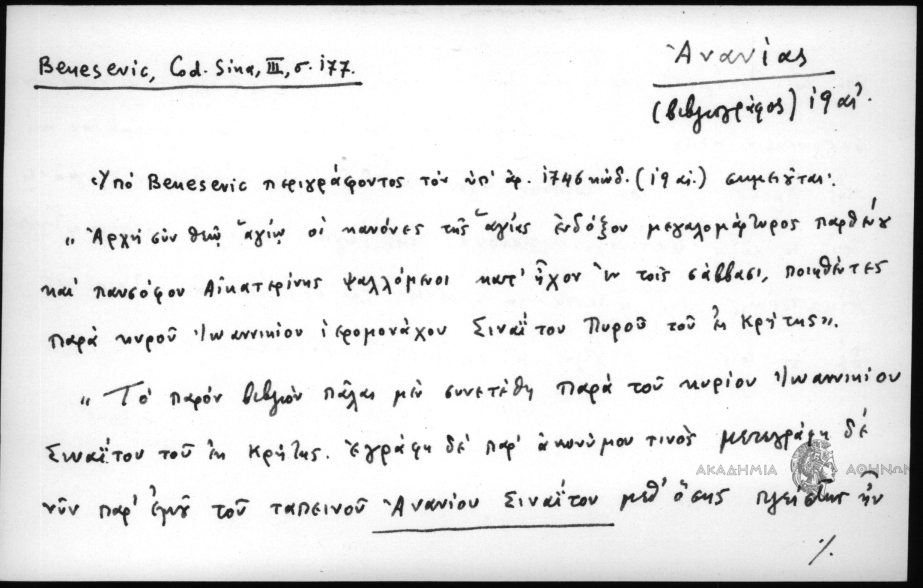 Benesevic, Cod. Sina, III, σ. 177.
Ἀνανίας
(βιβλιογράφος) 19 αἰ.
Ὑπό Benesevic περιγράφοντος τόν ὑπ' ἀρ. 1746 κώδ. (19 αἰ.) σημειοῦται·
„ Ἀρχή σύν θεῷ ἁγίῳ οἱ κανόνες τῆς ἁγίας ἐνδόξου μεγαλομάρτυρος παρθένου
καί πανσόφου Αἰκατερίνης ψαλλόμενοι κατ' ἦχον ἐν τοῖς σάββασι, ποιηθέντες
παρά κυροῦ Ἰωαννικίου ἱερομονάχου Σιναΐτου Πυροῦ τοῦ ἐκ Κρήτης».
„ Τό παρόν βιβλίον πάλαι μέν συνετέθη παρά τοῦ κυρίου Ἰωαννικίου
Σιναΐτου τοῦ ἐκ Κρήτης. Ἐγράφη δέ παρ' ἀκωνύμου τινός μετεγράφη δέ
νῦν παρ' ἐμοῦ τοῦ ταπεινοῦ Ἀνανίου Σιναΐτου μεθ' ὅσης πλείστης ἦν
ΑΚΑΔΗΜΙΑ ΑΘΗΝΩΝ
%